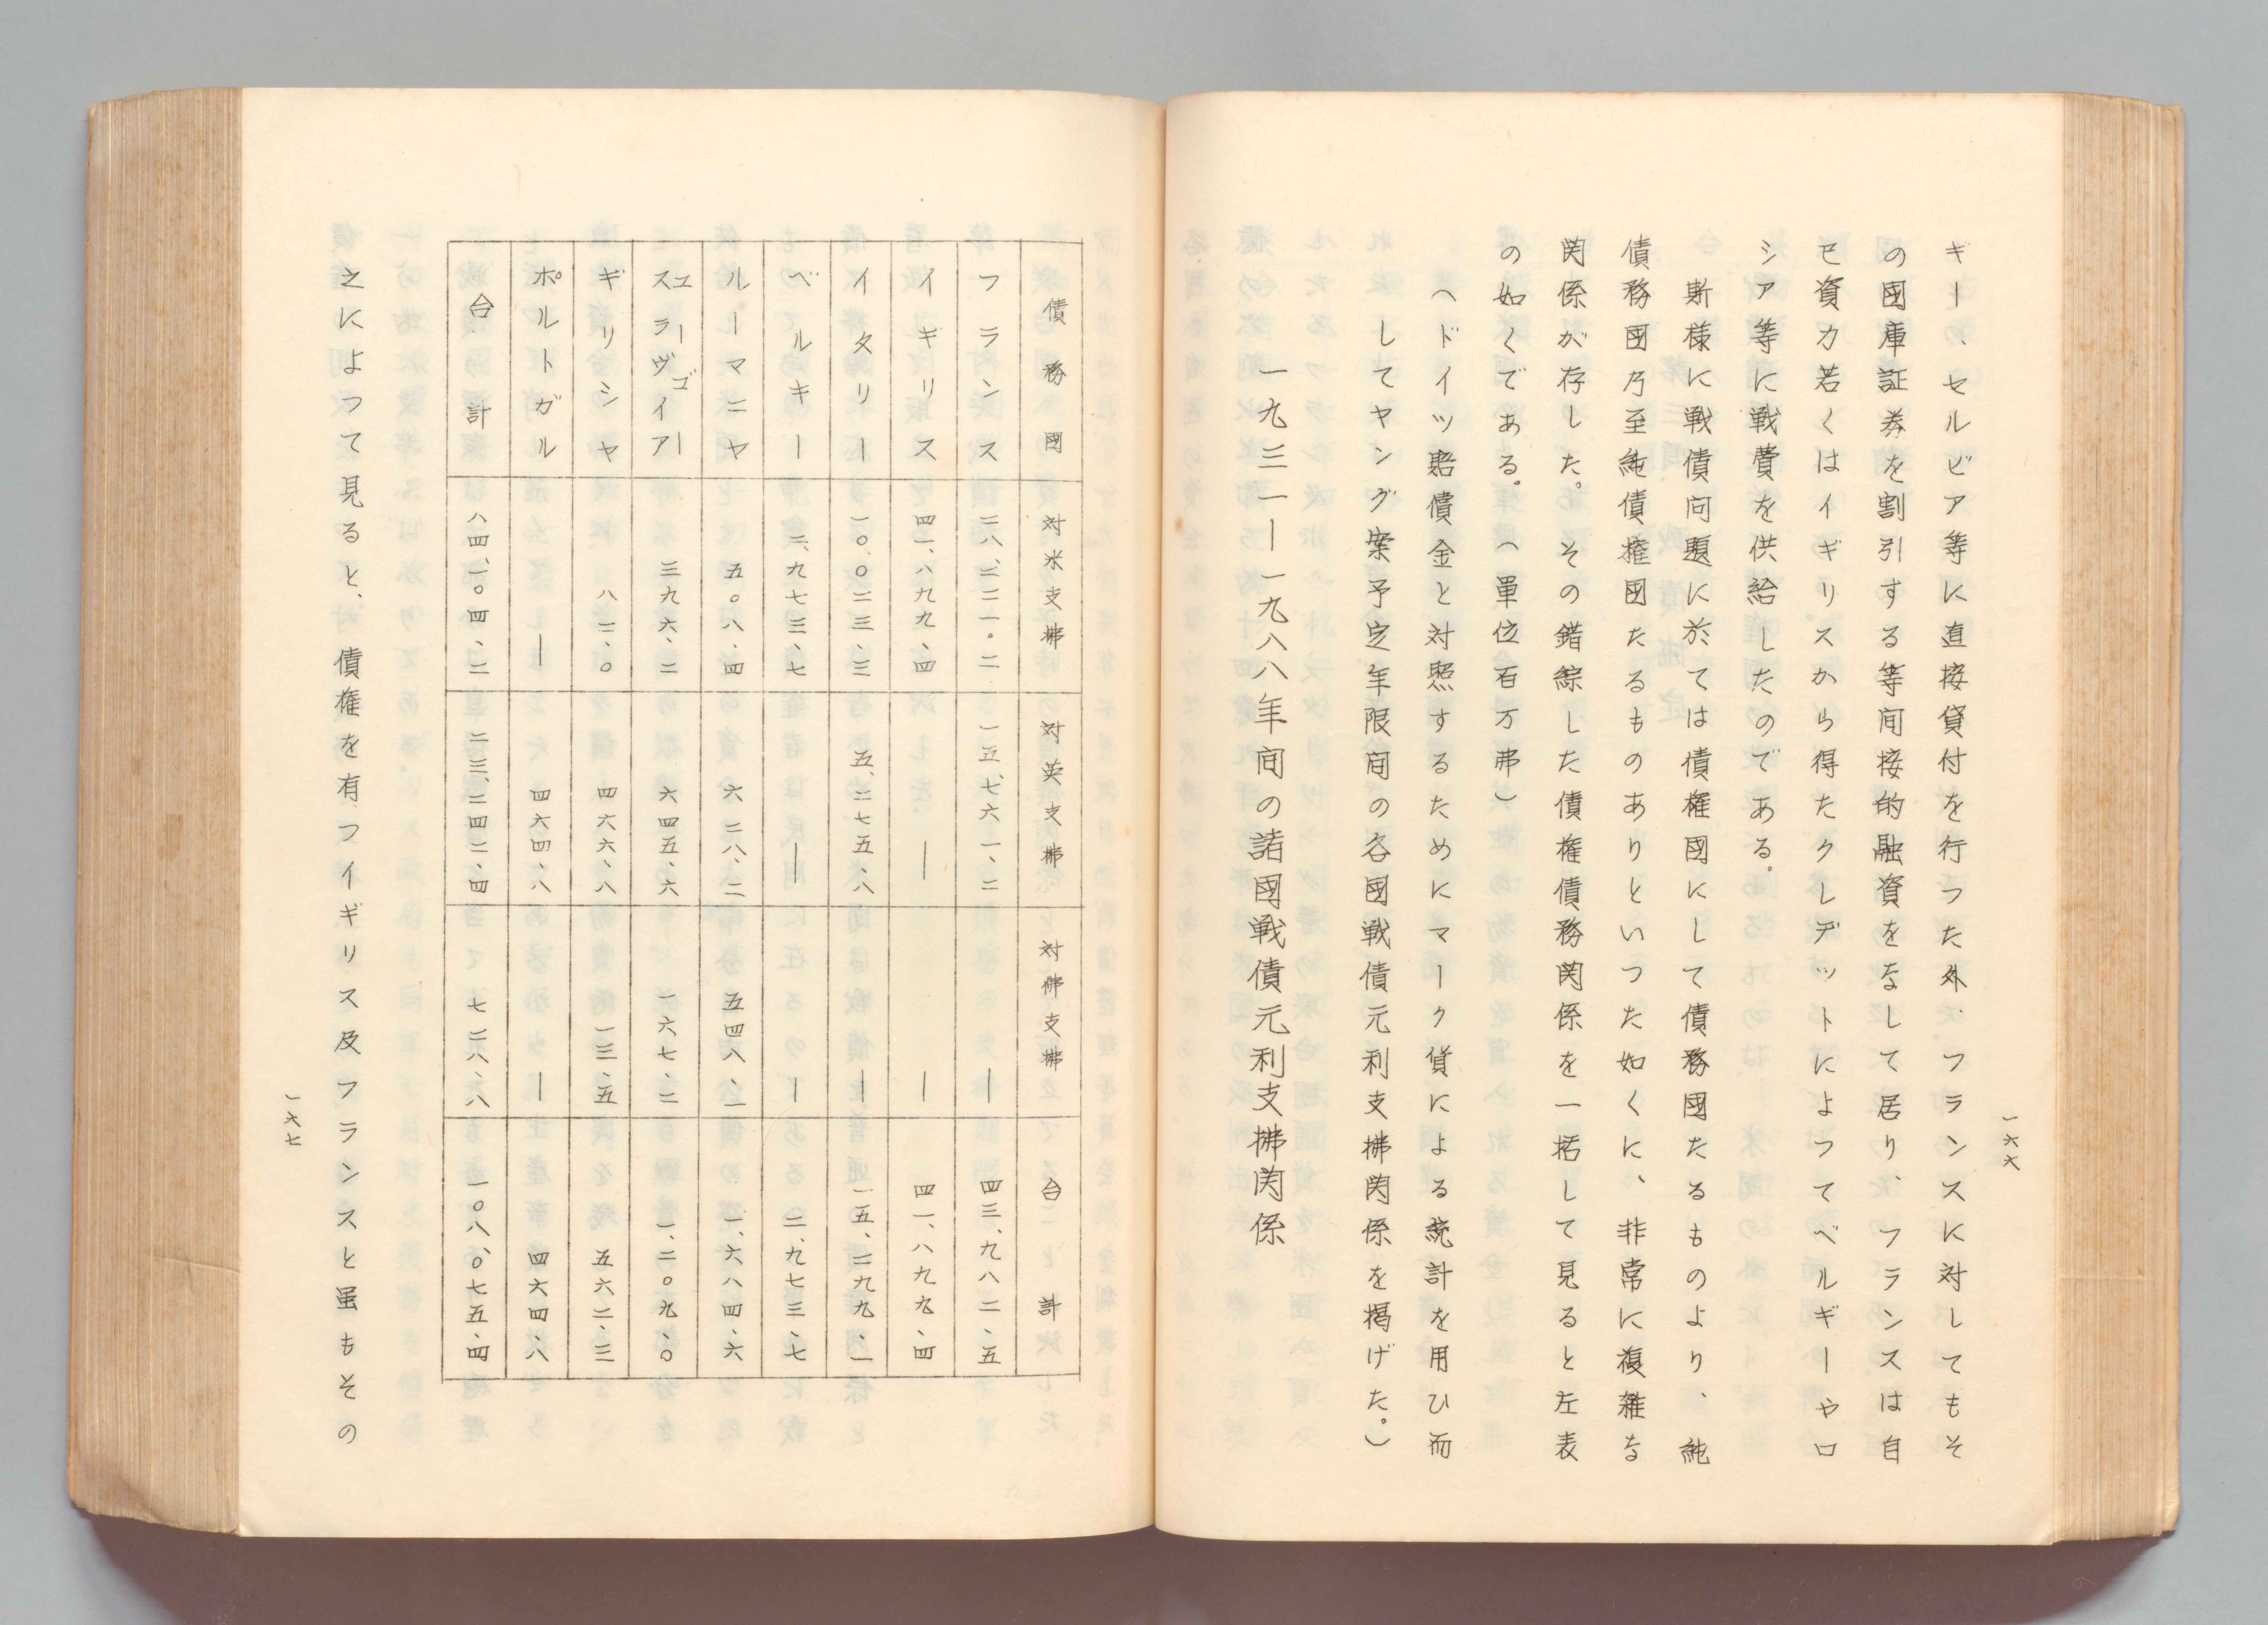 一六六
ギー、セルビア等に直接貸付を行つた外、フランスに対してもそ
の國庫証券を割引する等间接的融資をなして居り、フランスは自
已資力若くはイギリスから得たクレデットによつてベルギーやロ
シア等に戦費を供給したのである。
斯様に戦債问題に於ては債権國にして債務國たるものより、純
債務国乃至純債権国たるものありといつた如くに、非常に複雑な
関係が存した。その錯綜した債権債務関係を一括して見ると左表
の如くである。（單位百万弗）
（ドイツ賠償金と対照するためにマーク貨による統計を用ひ而
してヤング案予定年限间の各国戦債元利支拂関係を掲げた。）
一九三一―一九八八年间の諸國戦債元利支拂関係
債務國 対米支拂 対英支拂 対佛支拂 合計
フランス 二八、二二一。二 一五、七六一、二 ― 四三、九八二、五
イギリス 四一、八九九、四 ― ― 四一、八九九、四
イタリー 一〇、〇二三、三 五、二七五、八 ― 一五、二九九、一
ベルキー 二、九七三、七 ― ― 二、九七三、七
ルーマニヤ 五〇八、四 六二八、二 五四八、一 一、六八四、六
ユーゴースラヴイア 三九六、二 六四五、六 一六七、二 一、二〇九、〇
ギリシヤ 八二、〇 四六六、八 一三、五 五六二、三
ポルトガル ― 四六四、八 ― 四六四、八
合計 八四、一〇四、二 二三、二四二、四 七二八、八 一〇八、〇七五、四
之によつて見ると、債権を有フイギリス及フランスと虽もその
一六七